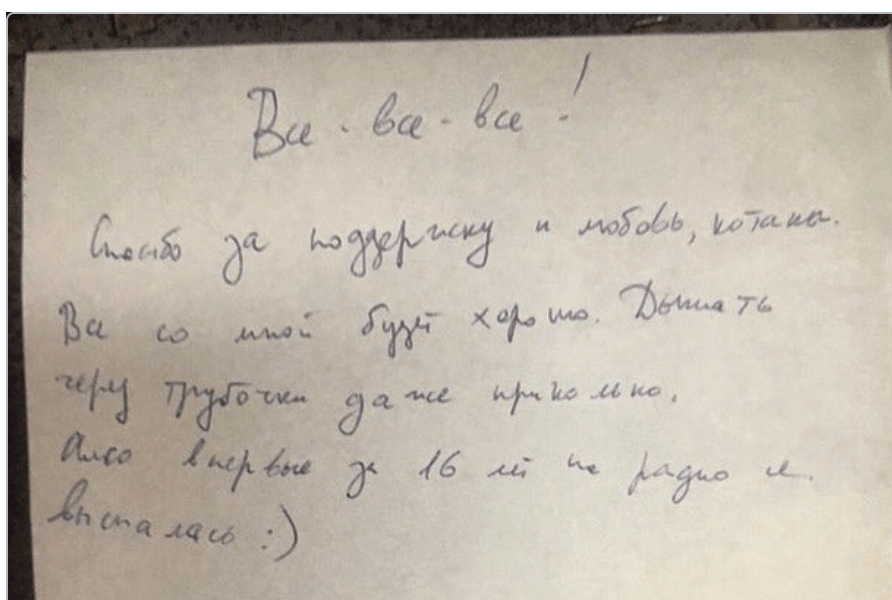 Все - все - все!
Спасибо за поддержку и любовь, котаны.
Все со мной будет хорошо. Дышать
через трубочки даже прикольно.
Алсо впервые за 16 лет не радио и
выспалась :)